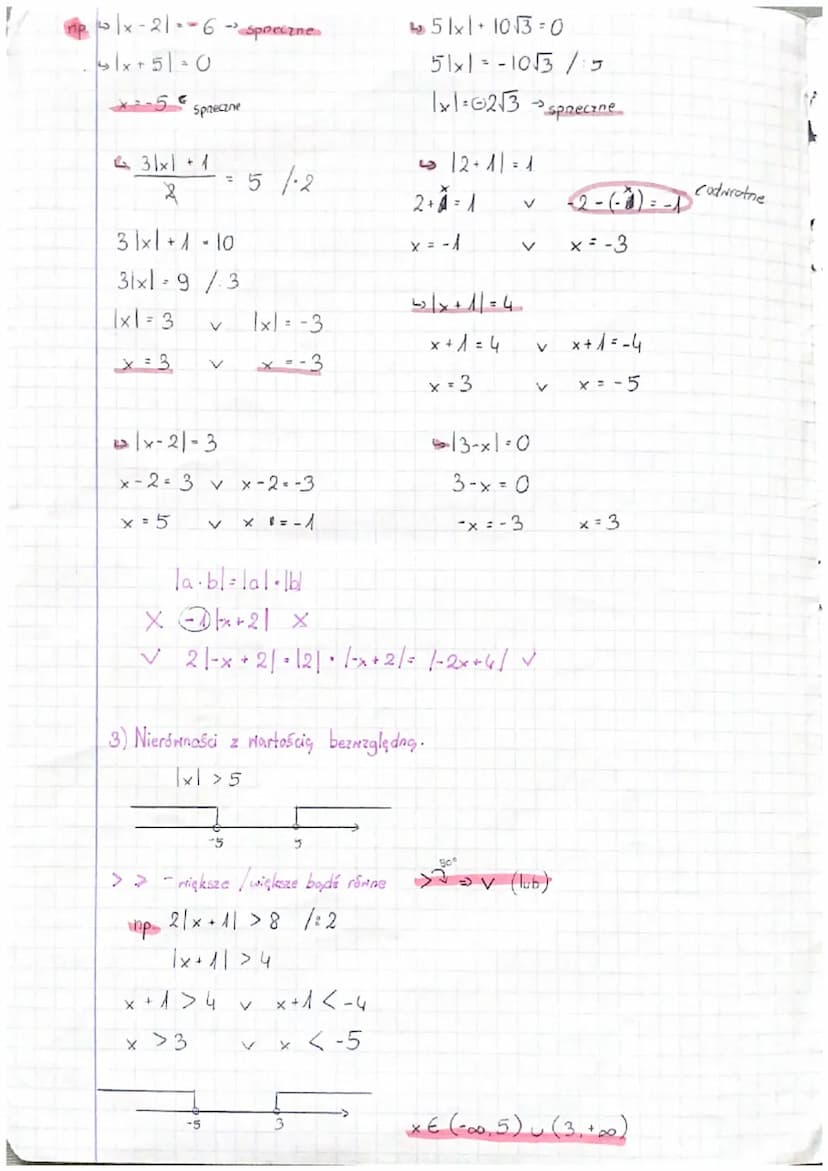 np. ↳ |x - 2| = -6 → sprzeczne
↳ |x + 5| = 0
x = -5 sprzeczne
↳ 5|x| + 10√3 = 0
5|x| = -10√3 / :5
|x| = -2√3 → sprzeczne
↳ 3|x| + 1 / 2 = 5 / ·2
3|x| + 1 = 10
3|x| = 9 / :3
|x| = 3 v |x| = -3
x = 3 v x = -3
↳ |2 + 1| = 1
2 + x = 1 v -2 - (-x) = -1 odwrotne
x = -1 v x = -3
↳ |x + 1| = 4
x + 1 = 4 v x + 1 = -4
x = 3 v x = -5
↳ |x - 2| = 3
x - 2 = 3 v x - 2 = -3
x = 5 v x = -1
↳ |3 - x| = 0
3 - x = 0
-x = -3 x = 3
|a · b| = |a| · |b|
X -1|-x + 2| X
✓ 2|-x + 2| = |2| · |-x + 2| = |-2x + 4| ✓
3) Nierówności z wartością bezwzględną.
|x| > 5
-5 5
> ≥ - większe / większe bądź równe > 90° ⇒ v (lub)
np. 2|x + 1| > 8 / :2
|x + 1| > 4
x + 1 > 4 v x + 1 < -4
x > 3 v x < -5
-5 3
x ∈ (-∞, 5) ∪ (3, +∞)